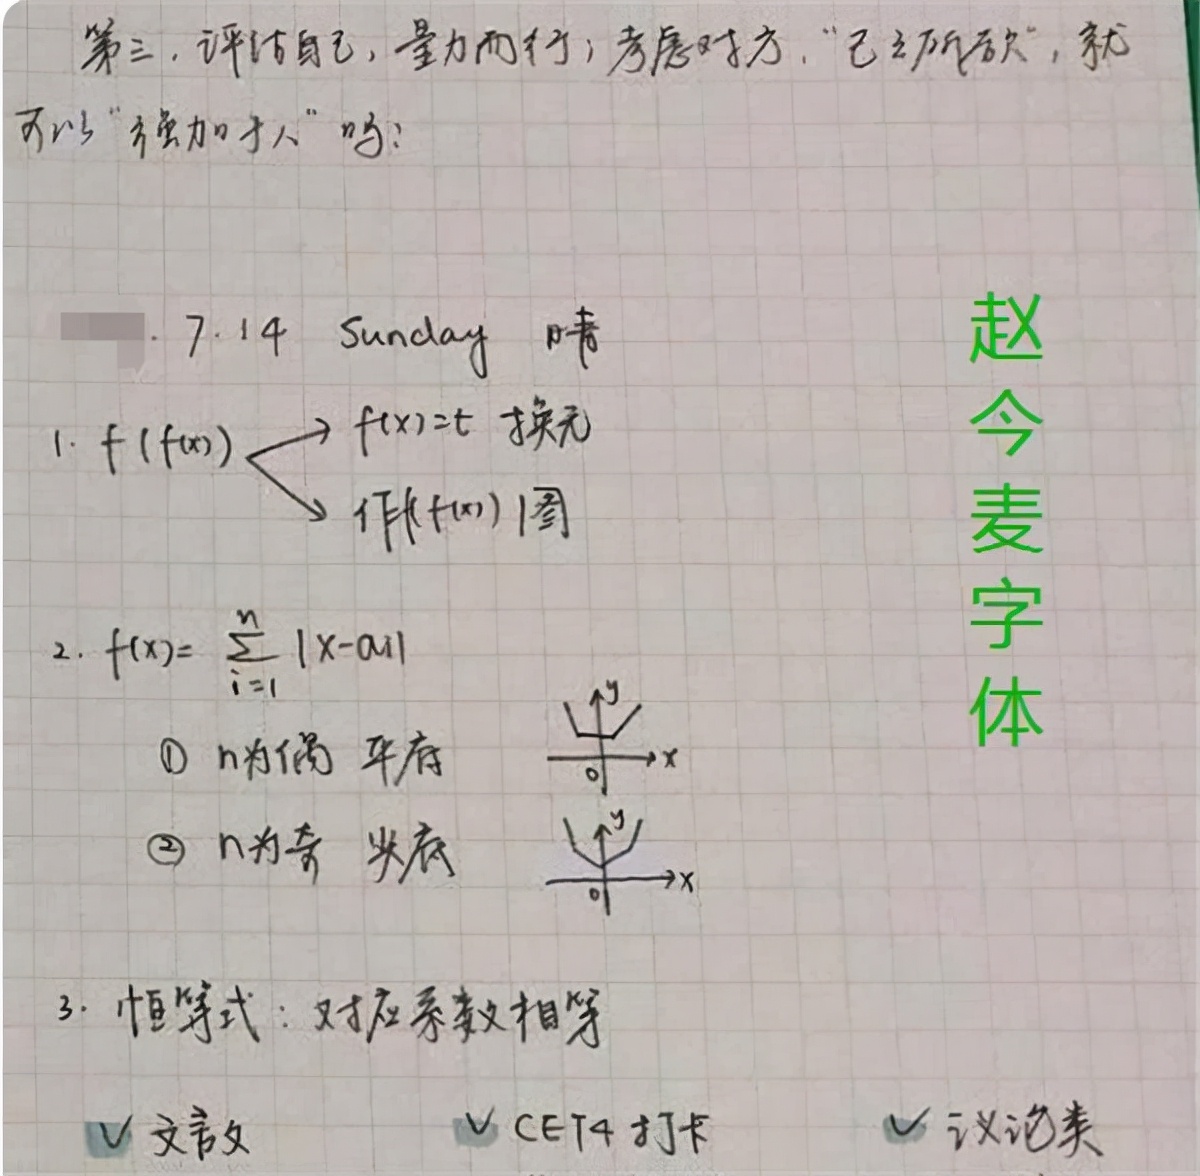 第三,评估自己,量力而行;考虑对方,“己之所欲”,就
可以“强加于人”吗?
7.14 Sunday 晴
1. f(f(x))
f(x)=t 换元
作f(f(x))图
2. f(x)= \sum_{i=1}^{n} |x-ai|
① n为偶 平底
② n为奇 尖底
y
x
0
y
x
0
3. 恒等式:对应系数相等
✓ 文言文 ✓ CET4 打卡 ✓ 议论类
赵今麦字体